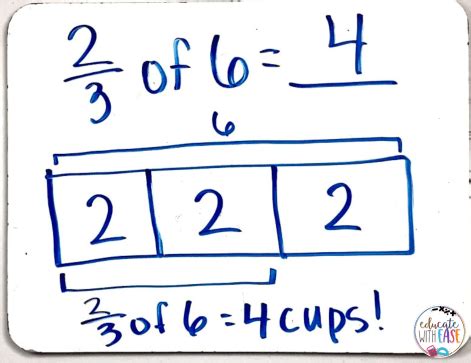 2/3 of 6 = 4
6
2 2 2
2/3 of 6 = 4 cups!
educate
WITH EASE